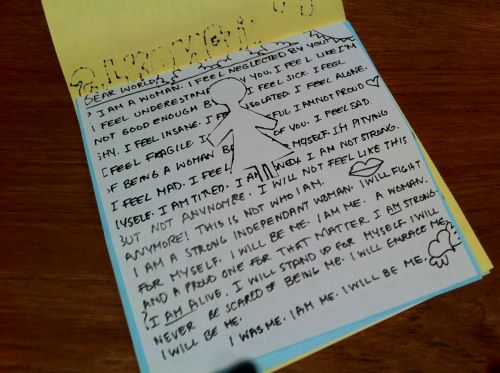 DEAR WORLD,
I AM A WOMAN. I FEEL NEGLECTED BY YOU.
I FEEL UNDERESTIMATED BY YOU. I FEEL LIKE I'M
NOT GOOD ENOUGH I FEEL SICK. I FEEL
SHY. I FEEL INSANE. I ISOLATED. I FEEL ALONE.
I FEEL FRAGILE. I I AM NOT PROUD
OF BEING A WOMAN OF YOU. I FEEL SAD.
I FEEL MAD. I FEEL MYSELF. I'M PITYING
MYSELF. I AM TIRED. I AM I AM NOT STRONG.
BUT NOT ANYMORE. I WILL NOT FEEL LIKE THIS
ANYMORE! THIS IS NOT WHO I AM.
I AM A STRONG INDEPENDANT WOMAN. I WILL FIGHT
FOR MYSELF. I WILL BE ME. I AM ME. A WOMAN.
AND A PROUD ONE FOR THAT MATTER. I AM STRONG.
I AM ALIVE. I WILL STAND UP FOR MYSELF. I WILL
NEVER BE SCARED OF BEING ME. I WILL EMBRACE ME.
I WILL BE ME.
I WAS ME. I AM ME. I WILL BE ME.